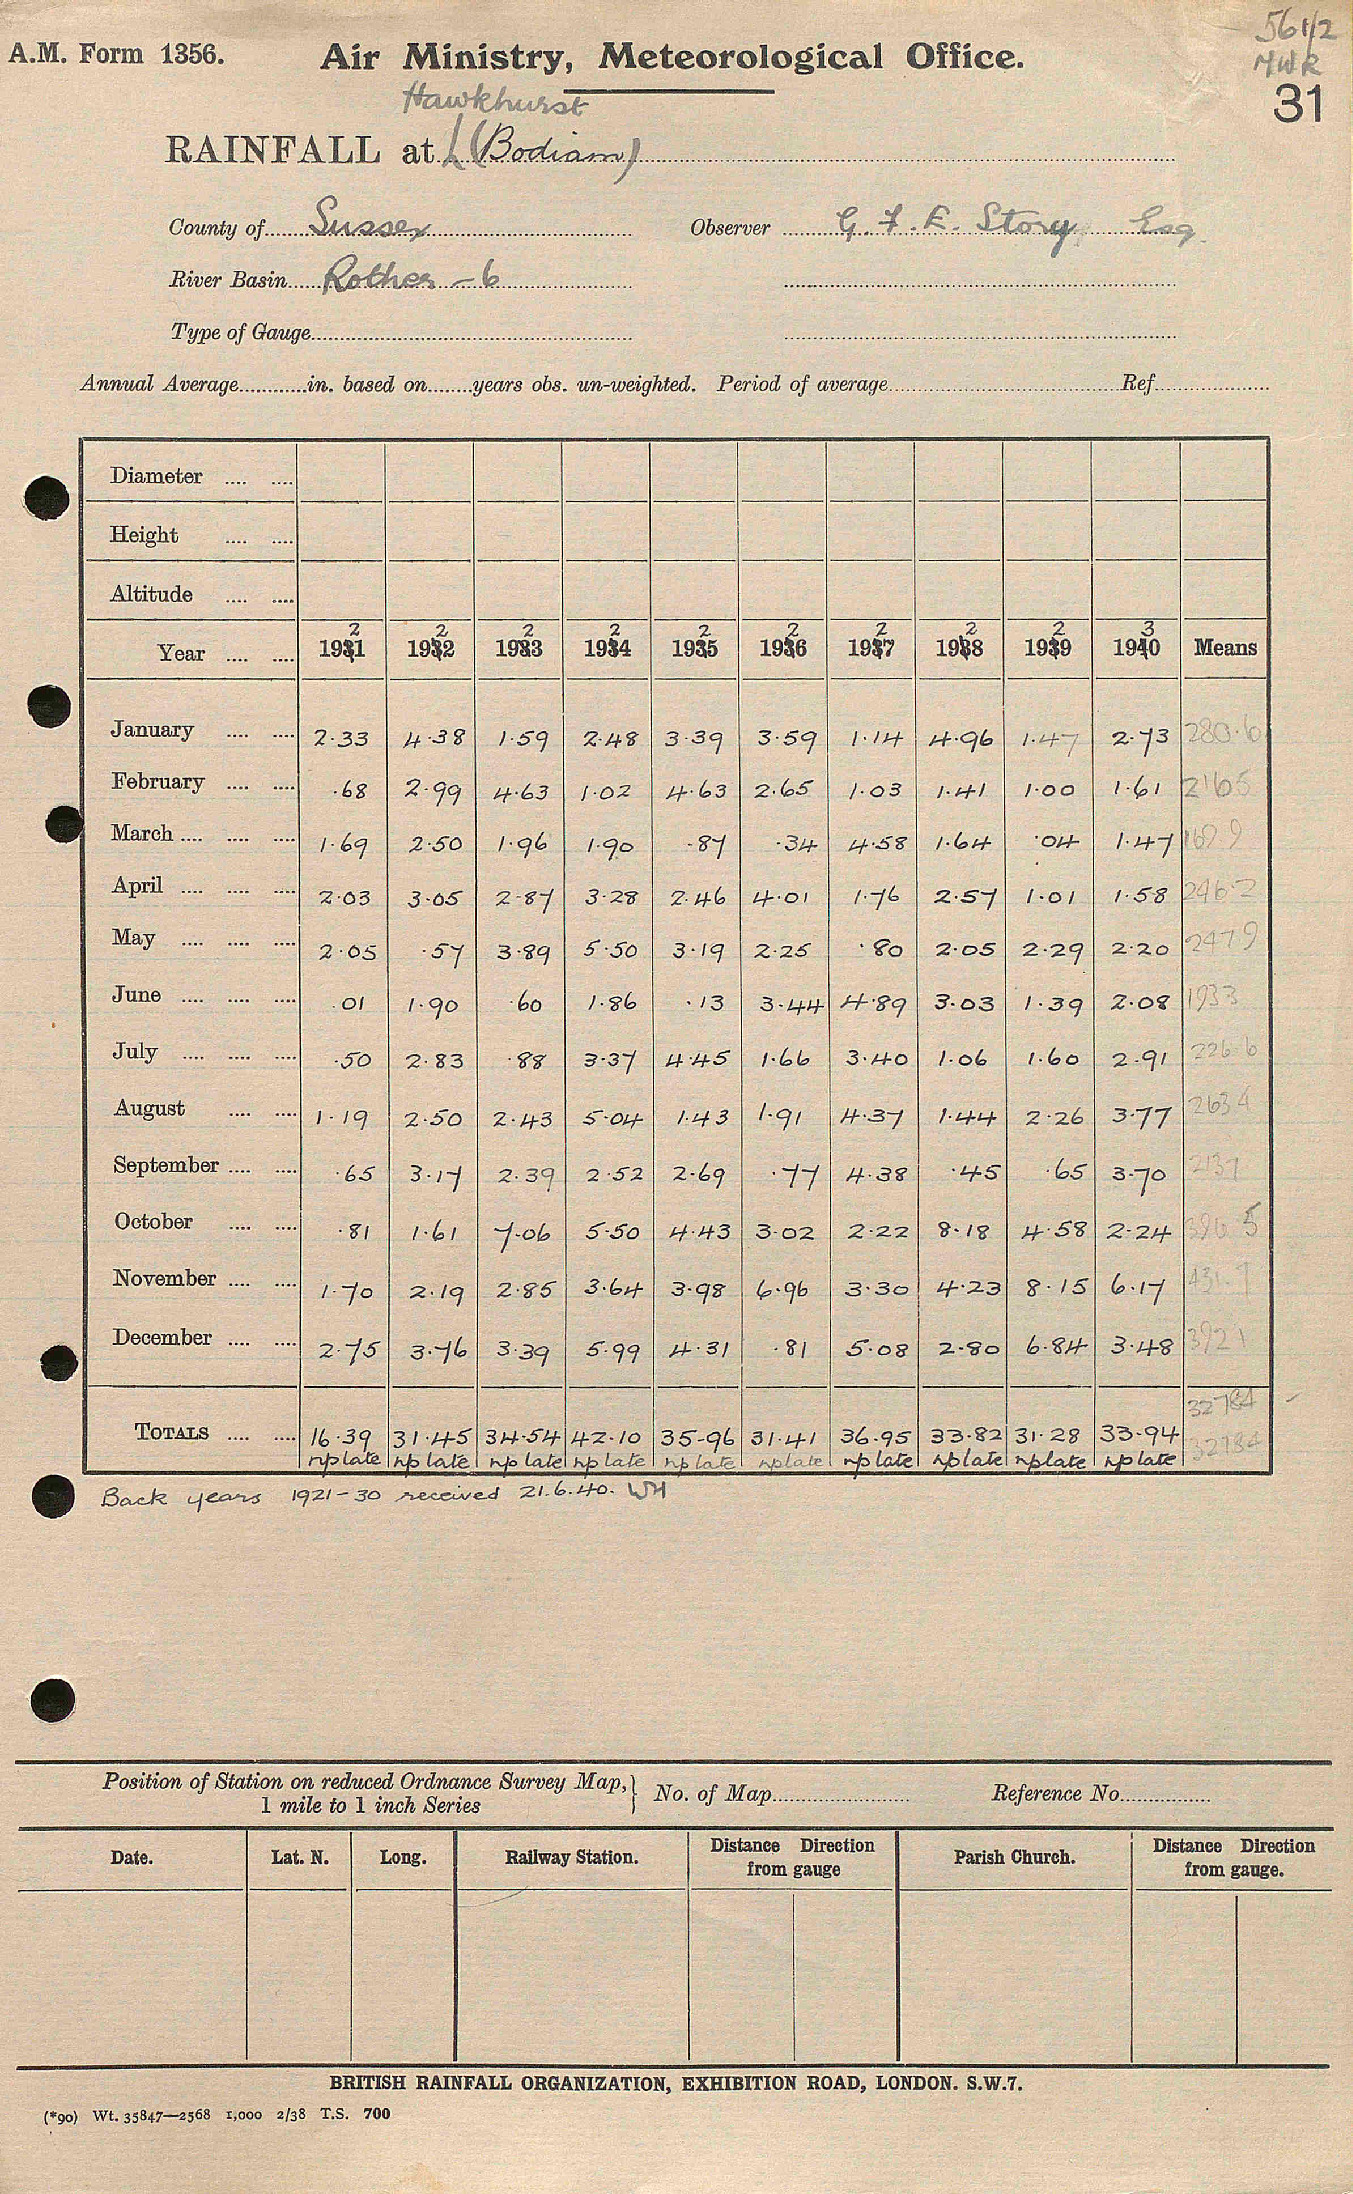 5612
A.M. Form 1356. Air Ministry, Meteorological Office. MWR
31
Hawkhurst
RAINFALL at (Bodiam)
County of Sussex Observer G. F. E. Story, Esq.
River Basin Rother - 6
Type of Gauge
Annual Average in. based on years obs. un-weighted. Period of average Ref.
Diameter .... ....
Height .... ....
Altitude .... ....
2 2 2 2 2 2 2 2 2 3
Year .... .... 1931 1932 1933 1934 1935 1936 1937 1938 1939 1940 Means
January .... .... 2.33 4.38 1.59 2.48 3.39 3.59 1.14 4.96 1.47 2.73 280.6
February .... .... .68 2.99 4.63 1.02 4.63 2.65 1.03 1.41 1.00 1.61 2165
March .... .... .... 1.69 2.50 1.96 1.90 .87 .34 4.58 1.64 .04 1.47 1699
April .... .... .... 2.03 3.05 2.87 3.28 2.46 4.01 1.76 2.57 1.01 1.58 246.2
May .... .... .... 2.05 .57 3.89 5.50 3.19 2.25 .80 2.05 2.29 2.20 2479
June .... .... .... .01 1.90 .60 1.86 .13 3.44 4.89 3.03 1.39 2.08 1933
July .... .... .... .50 2.83 .88 3.37 4.45 1.66 3.40 1.06 1.60 2.91 226.6
August .... .... 1.19 2.50 2.43 5.04 1.43 1.91 4.37 1.44 2.26 3.77 2634
September .... .... .65 3.17 2.39 2.52 2.69 .77 4.38 .45 .65 3.70 2137
October .... .... .81 1.61 7.06 5.50 4.43 3.02 2.22 8.18 4.58 2.24 396 5
November .... .... 1.70 2.19 2.85 3.64 3.98 6.96 3.30 4.23 8.15 6.17 431.7
December .... .... 2.75 3.76 3.39 5.99 4.31 .81 5.08 2.80 6.84 3.48 3921
32784
TOTALS .... .... 16.39 31.45 34.54 42.10 35.96 31.41 36.95 33.82 31.28 33.94 32784
np late np late np late np late np late np late np late np late np late np late
Back years 1921-30 received 21.6.40. WH
Position of Station on reduced Ordnance Survey Map, No. of Map Reference No.
1 mile to 1 inch Series
Date. Lat. N. Long. Railway Station. Distance Direction from gauge Parish Church. Distance Direction from gauge.
BRITISH RAINFALL ORGANIZATION, EXHIBITION ROAD, LONDON. S.W.7.
(*90) Wt. 35847—2568 1,000 2/38 T.S. 700